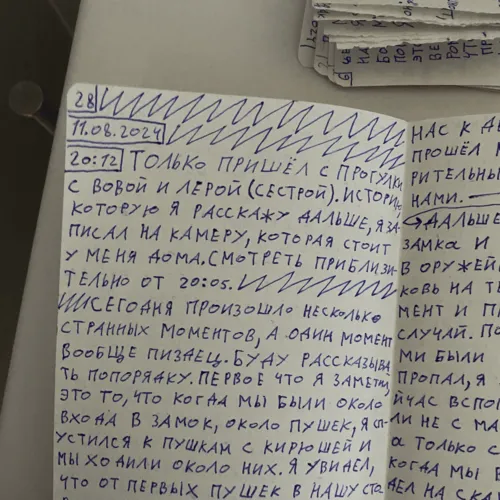 28
11.08.2024
20:12 ТОЛЬКО ПРИШЁЛ С ПРОГУЛКИ
С ВОВОЙ И ЛЕРОЙ (СЕСТРОЙ). ИСТОРИЮ,
КОТОРУЮ Я РАССКАЖУ ДАЛЬШЕ, Я ЗА-
ПИСАЛ НА КАМЕРУ, КОТОРАЯ СТОИТ
У МЕНЯ ДОМА. СМОТРЕТЬ ПРИБЛИЗИ-
ТЕЛЬНО ОТ 20:05.
СЕГОДНЯ ПРОИЗОШЛО НЕСКОЛЬКО
СТРАННЫХ МОМЕНТОВ, А ОДИН МОМЕНТ
ВООБЩЕ ПИЗДЕЦ. БУДУ РАССКАЗЫВА
ТЬ ПОПОРЯДКУ. ПЕРВОЕ ЧТО Я ЗАМЕТИЛ,
ЭТО ТО, ЧТО КОГДА МЫ БЫЛИ ОКОЛО
ВХОДА В ЗАМОК, ОКОЛО ПУШЕК, Я
УСТИЛСЯ К ПУШКАМ С КИРЮШЕЙ И
МЫ ХОДИЛИ ОКОЛО НИХ. Я УВИДЕЛ,
ЧТО ОТ ПЕРВЫХ ПУШЕК В НАШУ СТО
НАС К
ПРОШЁЛ
РИТЕЛЬНЫ
НАМИ.
ДАЛЬШЕ
ЗАМКА И
В ОРУЖЕЙ
КОВЬ НА
МЕНТ И
СЛУЧАЙ. ПО
МИ БЫЛИ
ПРОПАЛ, Я
ЙЧАС ВСПО
ЛИ НЕ С МА
А ТОЛЬКО С
КОГДА МЫ
ДЕЛ НА